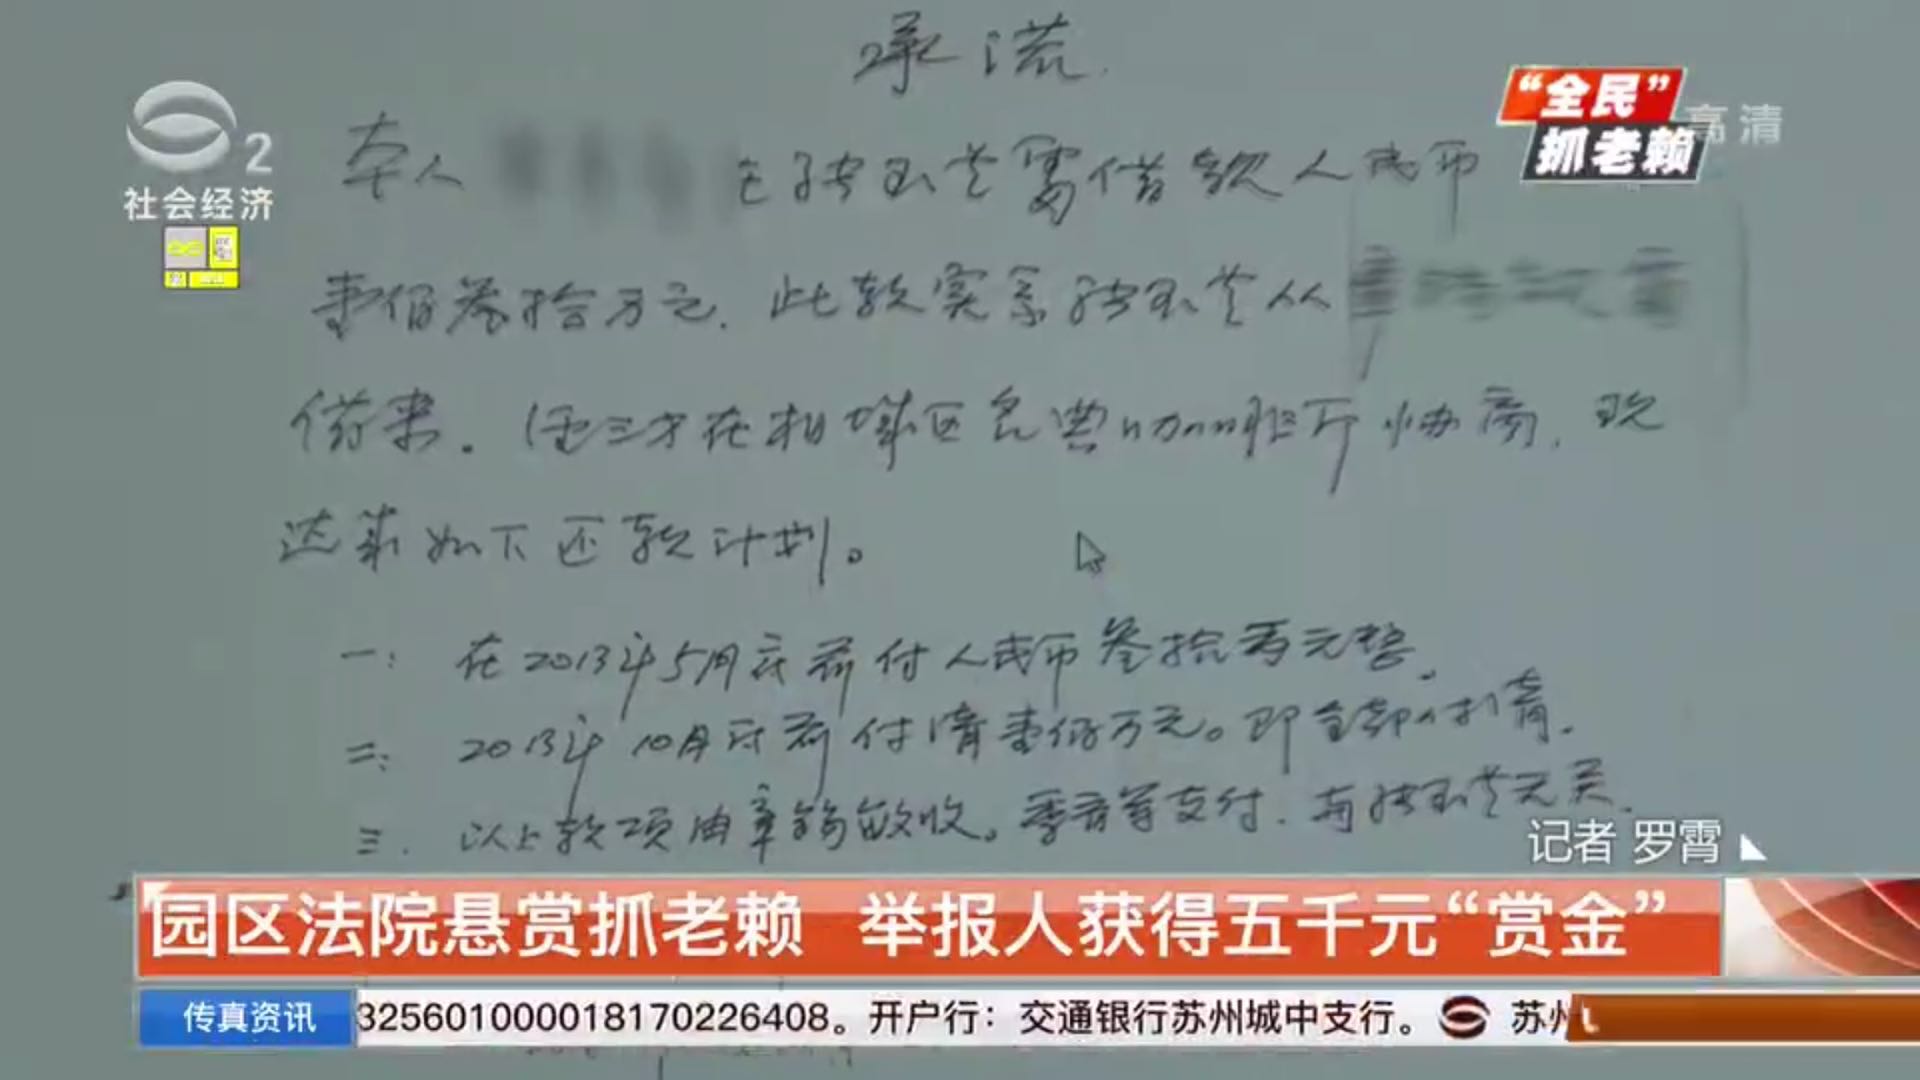 承诺
本人 在张玉芝需借款人民币
壹佰叁拾万元. 此款实系张玉芝从
借来。 在相城区 协商, 现
达成如下还款计划。
一: 在2013年5月底前付人民币叁拾万元整.
二: 2013年10月底前付清壹佰万元。即全部付清.
三. 以上款项由 收。 支付. 与张玉芝无关.
2
社会经济
“全民”
抓老赖
高清
记者 罗霄
园区法院悬赏抓老赖 举报人获得五千元“赏金”
传真资讯 325601000018170226408。开户行：交通银行苏州城中支行。 苏州